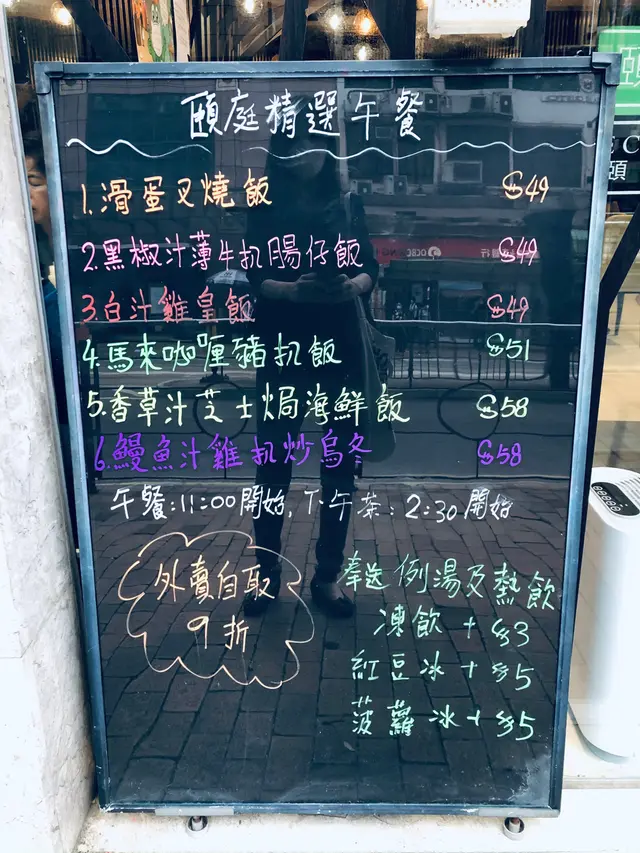 頤庭精選午餐
1.滑蛋叉燒飯 $49
2.黑椒汁薄牛扒腸仔飯 $49
3.白汁雞皇飯 $49
4.馬來咖喱豬扒飯 $51
5.香草汁芝士焗海鮮飯 $58
6.鰻魚汁雞扒炒烏冬 $58
午餐:11:00開始,下午茶:2:30開始
外賣自取
9折
奉送例湯及熱飲
凍飲+$3
紅豆冰+$5
菠蘿冰+$5